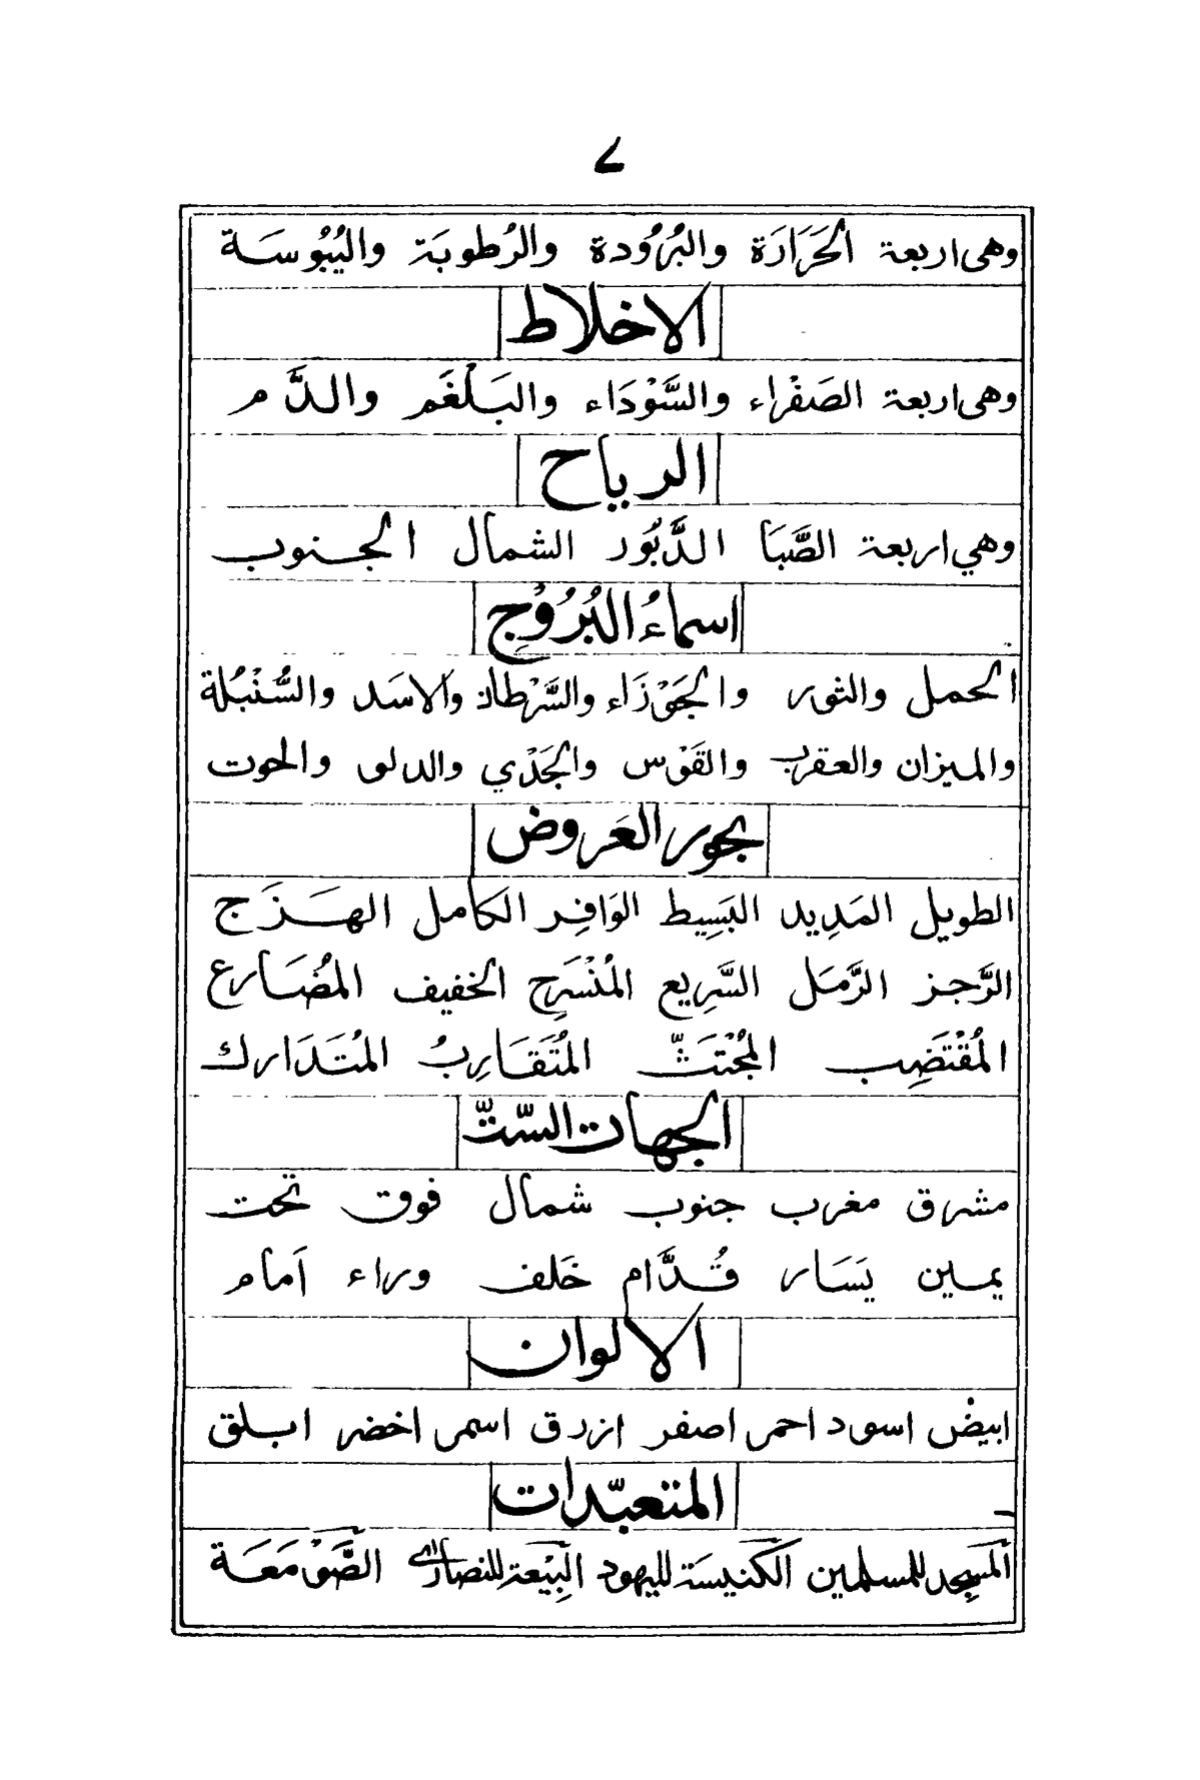 ٧
وهى اربعة الحَرَارَة والبُرُودة والرُطوبَة واليُبُوسَة
الاخلاط
وهى اربعة الصَفْراء والسَّوْدَاء والبَلْغَم والدَّم
الرياح
وهي اربعة الصَّبَا الدَّبُور الشمال الجنوب
اسماءُ البُرُوْجِ
الحمل والثور والجَوْزَاء والسَّرْطان والاسَد والسُّنْبُلة
والميزان والعقرب والقَوْس والجَدْي والدلو والحوت
بحور العَروض
الطويل المَدِيد البَسِيط الوَافِر الكامل الهَزَج
الرَّجز الرَّمَل السَّرِيع المُنْسَرِح الخفيف المُضَارع
المُقْتَضِب المُجْتَثّ المُتَقَارِبُ المُتَدَارك
الجهات السّتّ
مشرق مغرب جنوب شمال فوق تحت
يمين يَسَار قُدَّام خَلف وراء اَمام
الالوان
ابيضْ اسود احمر اصفر ازرق اسمر اخضر ابلق
المتعبّدات
اَلمَسجِد للمسلمين اَلكَنيسَة لليهود اَلبِيْعَة للنصارى الصَّوْمَعَة